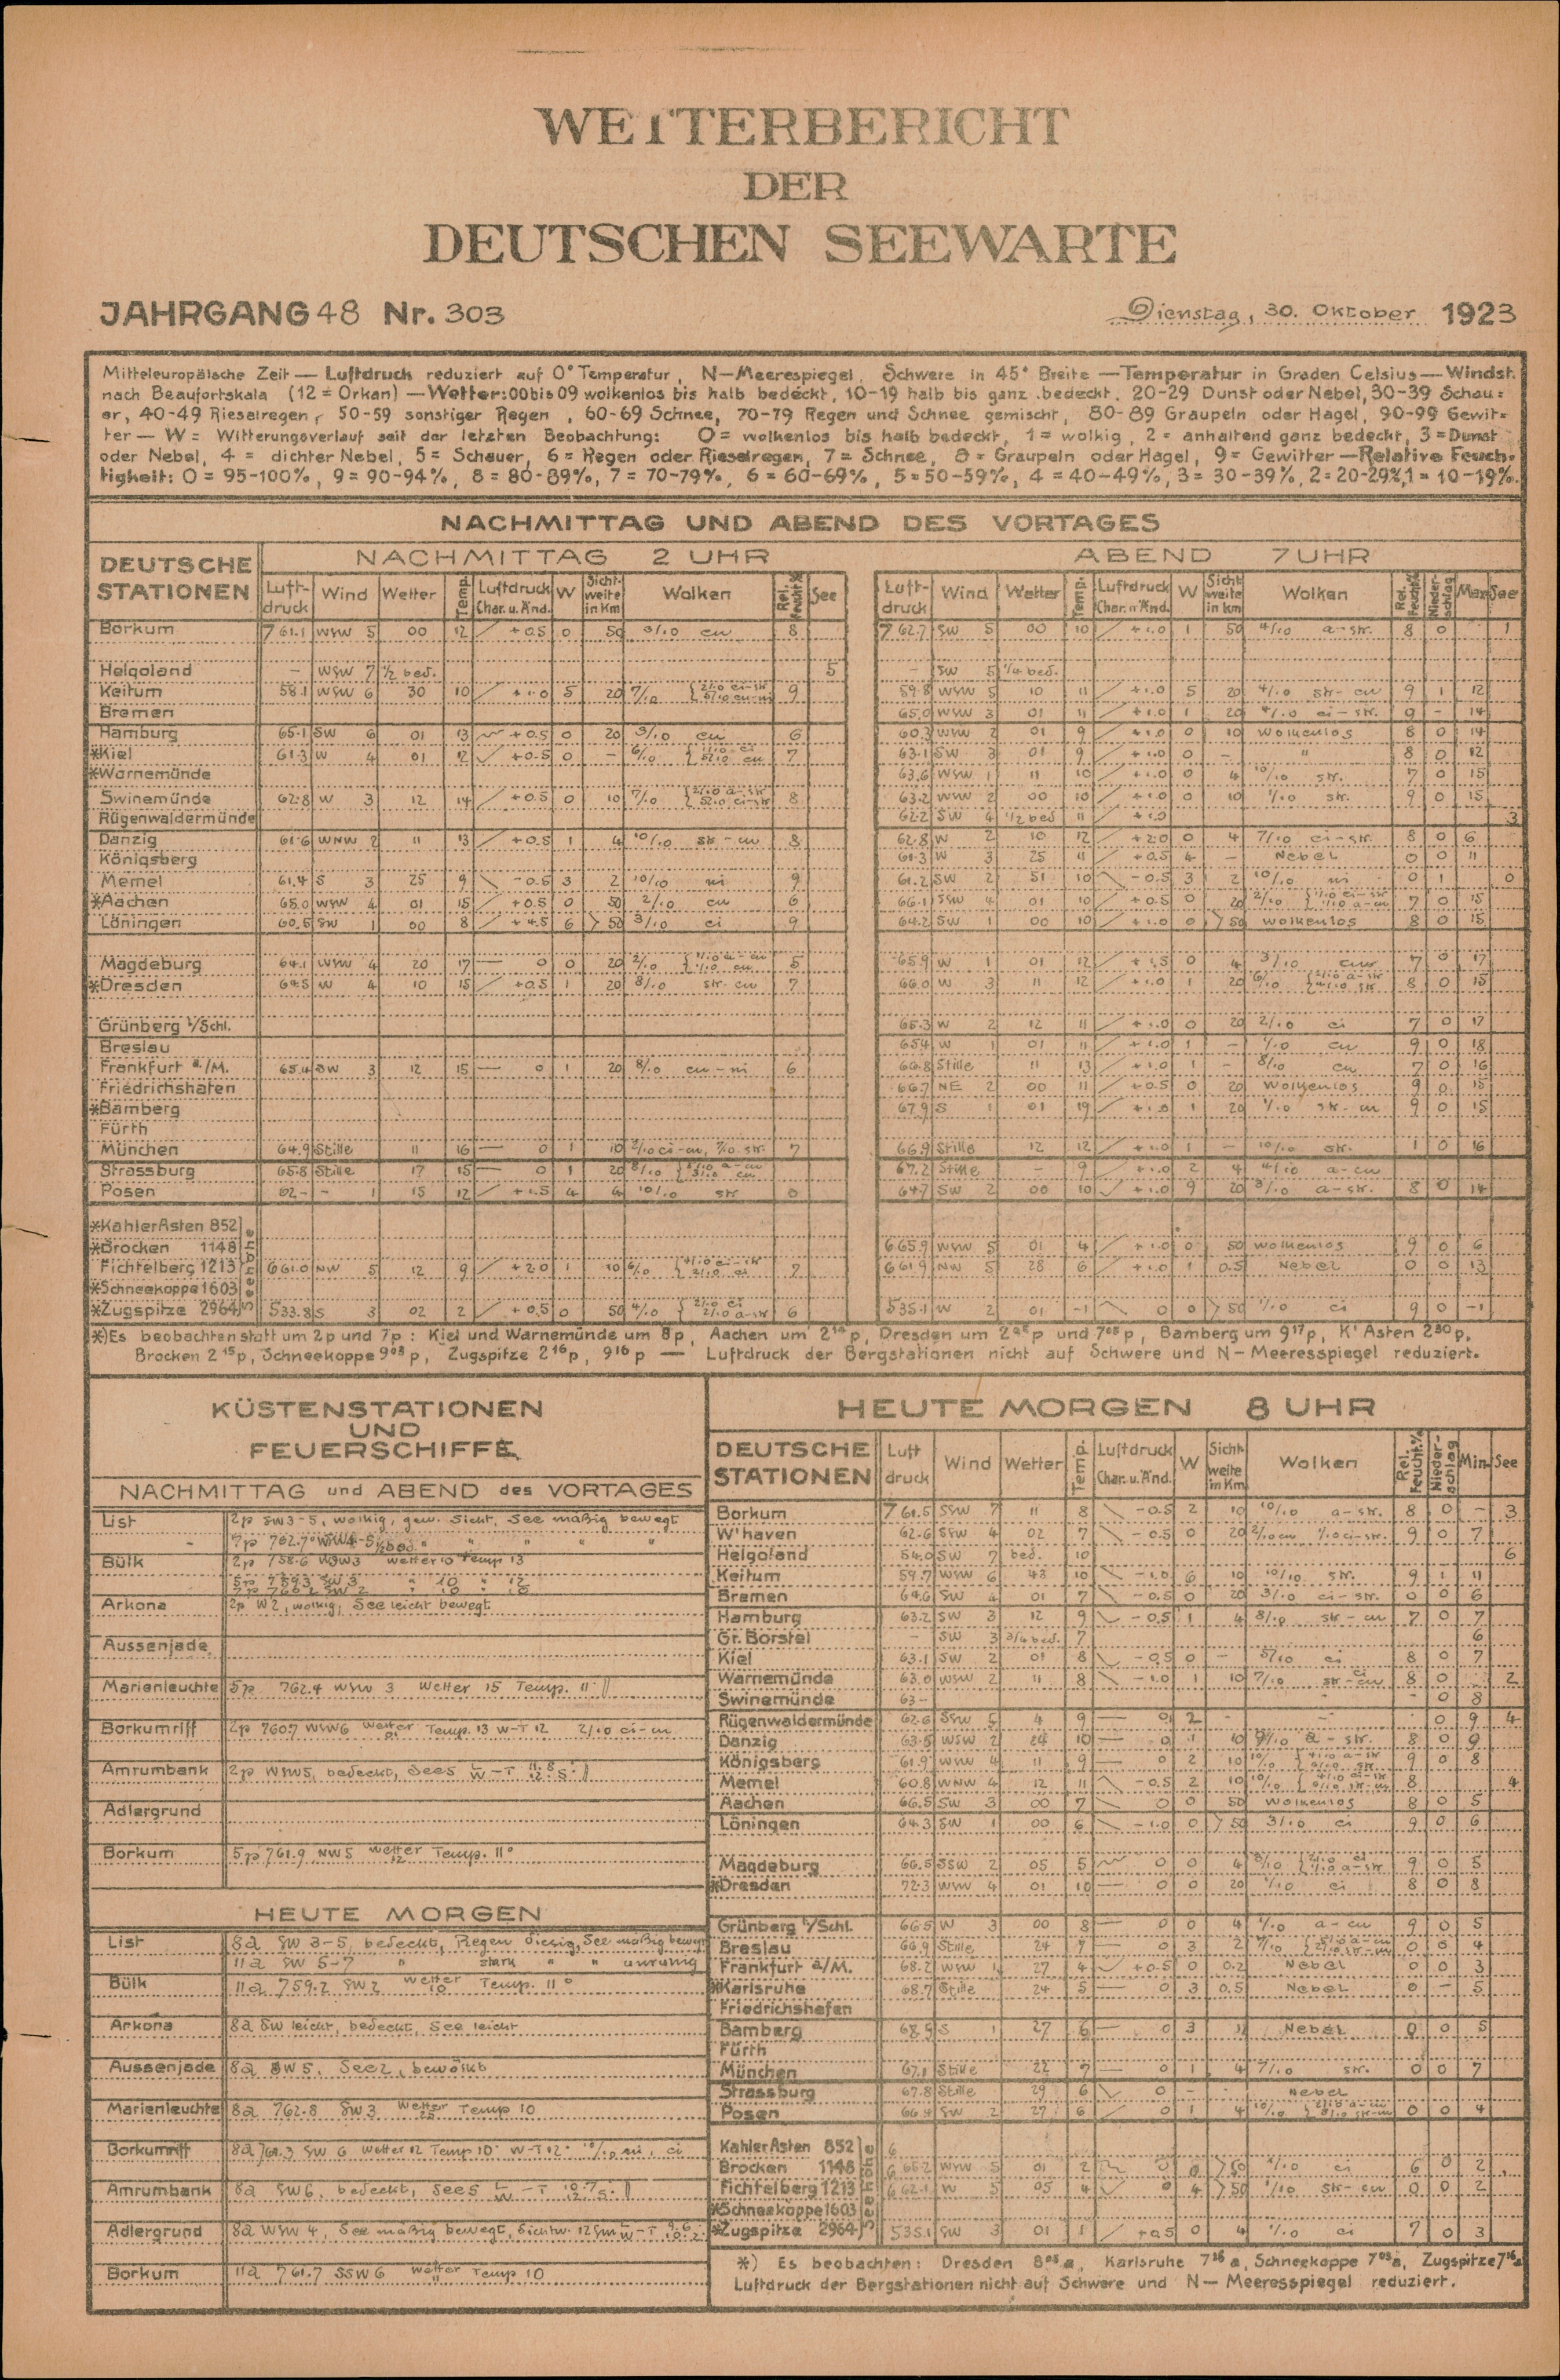 WETTERBERICHT
DER
DEUTSCHEN SEEWARTE
JAHRGANG 48 Nr. 303
Dienstag, 30. Oktober 1923
Mitteleuropäische Zeit — Luftdruck reduziert auf 0° Temperatur, N—Meerespiegel, Schwere in 45° Breite — Temperatur in Graden Celsius — Windst.
nach Beaufortskala (12 = Orkan) — Wetter: 00 bis 09 wolkenlos bis halb bedeckt, 10-19 halb bis ganz bedeckt, 20-29 Dunst oder Nebel, 30-39 Schau=
er, 40-49 Rieselregen, 50-59 sonstiger Regen, 60-69 Schnee, 70-79 Regen und Schnee gemischt, 80-89 Graupeln oder Hagel, 90-99 Gewit=
ter — W = Witterungsverlauf seit der letzten Beobachtung: 0 = wolkenlos bis halb bedeckt, 1 = wolkig, 2 = anhaltend ganz bedeckt, 3 = Dunst
oder Nebel, 4 = dichter Nebel, 5 = Schauer, 6 = Regen oder Rieselregen, 7 = Schnee, 8 = Graupeln oder Hagel, 9 = Gewitter — Relative Feuch-
tigkeit: 0 = 95-100%, 9 = 90-94%, 8 = 80-89%, 7 = 70-79%, 6 = 60-69%, 5 = 50-59%, 4 = 40-49%, 3 = 30-39%, 2 = 20-29%, 1 = 10-19%.
NACHMITTAG UND ABEND DES VORTAGES
DEUTSCHE STATIONEN NACHMITTAG 2 UHR ABEND 7 UHR
Luft-druck Wind Wetter Temp. Luftdruck Char. u. Änd. W Sicht-weite in Km Wolken Rel. Feucht.% See
Luft-druck Wind Wetter Temp. Luftdruck Char. u. Änd. W Sicht-weite in km Wolken Rel. Feucht.% Nieder-schlag Max See
Borkum 761.1 WSW 5 00 12 +0.5 0 50 3/10 cu 8 762.7 SW 5 00 10 +1.0 1 50 4/10 a-str. 8 0 1
Helgoland – WSW 7 1/2 bed. 5 – SW 5 1/4 bed.
Keitum 58.1 WSW 6 30 10 +1.0 5 20 7/10 9 59.8 WSW 5 10 11 +1.0 5 20 4/10 str-cu 9 1 12
Bremen 65.0 WSW 3 01 11 +1.0 1 20 4/10 ci-str. 9 – 14
Hamburg 65.1 SW 6 01 13 +0.5 0 20 3/10 cu 6 2 01 9 +1.0 0 10 wolkenlos 8 0 14
*Kiel 61.3 W 4 01 12 +0.5 0 – 6/10 7 63.1 SW 3 01 9 +1.0 0 – " 8 0 12
*Warnemünde 63.6 WSW 1 11 10 +1.0 0 4 10/10 str. 7 0 15
Swinemünde 62.8 W 3 12 14 +0.5 0 10 7/10 8 63.2 2 00 10 +1.0 0 10 1/10 str. 9 0 15
Rügenwaldermünde 62.2 SW 4 1/2 bed 11 +1.0 3
Danzig 61.6 WNW 2 11 13 +0.5 1 4 10/10 str-cu 8 62.8 W 2 10 12 +2.0 0 4 7/10 ci-str. 8 0 6
Königsberg 61.3 W 3 25 11 +0.5 4 – Nebel 0 0 11
Memel 61.4 S 3 25 9 -0.5 3 2 10/10 ni 9 61.2 SW 2 51 10 -0.5 3 2 10/10 ni 0 1 0
*Aachen 65.0 WSW 4 01 15 +0.5 0 50 2/10 cu 6 66.1 SSW 4 01 10 +0.5 0 20 2/10 7 0 15
Löningen 60.5 SW 1 00 8 +4.5 6 >50 3/10 ci 9 64.2 SW 1 00 10 +1.0 0 >50 wolkenlos 8 0 15
Magdeburg 64.1 WSW 4 20 17 0 0 20 2/10 5 65.9 W 1 01 12 +1.5 0 4 3/10 7 0 17
*Dresden 64.5 W 4 10 15 +0.5 1 20 8/10 str-cu 7 66.0 W 3 11 12 +1.0 1 20 6/10 8 0 15
Grünberg i/Schl. 65.3 W 2 12 11 +1.0 0 20 2/10 ci 7 0 17
Breslau 65.4 W 1 01 11 +1.0 1 – 1/10 cu 9 0 18
Frankfurt a./M. 65.4 SW 3 12 15 0 1 20 8/10 cu-ni 6 66.8 Stille 11 13 +1.0 1 – 8/10 cu 7 0 16
Friedrichshafen 66.7 NE 2 00 11 +0.5 0 20 wolkenlos 9 0 15
*Bamberg 67.9 S 1 01 19 +1.0 1 20 1/10 str-cu 9 0 15
Fürth
München 64.9 Stille 11 16 0 1 10 2/10 ci-cu, 7/10 str. 7 66.9 Stille 12 12 +1.0 1 – 10/10 str. 1 0 16
Strassburg 65.8 Stille 17 15 0 1 20 8/10 67.2 Stille – 9 +1.0 2 4 a-cu
Posen 62– – 1 15 12 +1.5 4 4 10/10 str 0 64.7 SW 2 00 10 +1.0 9 20 3/10 a-str. 8 0 14
*KahlerAsten 852 Seehöhe
*Brocken 1148 665.9 WSW 5 01 4 +1.0 0 50 wolkenlos 9 0 6
Fichtelberg 1213 661.0 NW 5 12 9 +2.0 1 10 6/10 7 661.9 NW 5 28 6 +1.0 1 0.5 Nebel 0 0 13
*Schneekoppe 1603
*Zugspitze 2964 533.8 S 3 02 2 +0.5 0 50 4/10 6 535.1 W 2 01 -1 0 0 >50 1/10 ci 9 0 -1
*) Es beobachten statt um 2p und 7p: Kiel und Warnemünde um 8p, Aachen um p, Dresden um p und 7⁰⁵p, Bamberg um 9¹⁷p, K' Asten 2³⁰p,
Brocken 2¹⁵p, Schneekoppe 9⁰³p, Zugspitze 2¹⁶p, 9¹⁶p — Luftdruck der Bergstationen nicht auf Schwere und N—Meeresspiegel reduziert.
KÜSTENSTATIONEN
UND
FEUERSCHIFFE
NACHMITTAG und ABEND des VORTAGES
List 2p SW 3-5, wolkig, gew. Sicht, See mäßig bewegt
7p 762.7 WSW 4-5 1/2 bed. " " " "
Bülk 2p 758.6 WSW 3 Wetter 10 Temp 13
5p 759.3 SW 3 " 10 "
Arkona 2p W 2, wolkig, See leicht bewegt
Aussenjade
Marienleuchte 5p 762.4 WSW 3 Wetter 15 Temp. 11°
Borkumriff 2p 760.7 WSW 6 Wetter 01 Temp. 13 W-T 12 2/10 ci-cu
Amrumbank 2p WSW 5, bedeckt, See 5
Adlergrund
Borkum 5p 761.9 NW 5 Wetter 12 Temp. 11°
HEUTE MORGEN
List 8a SW 3-5, bedeckt, Regen diesig, See mäßig bewegt
11a SW 5-7 " stark " " unruhig
Bülk 11a 759.2 SW 2 Wetter 10 Temp. 11°
Arkona 8a SW leicht, bedeckt, See leicht
Aussenjade 8a SW 5, See 2, bewölkt
Marienleuchte 8a 762.8 SW 3 Wetter 25 Temp 10
Borkumriff 8a 761.3 SW 6 Wetter 12 Temp 10° W-T 12° 10/10 ni, ci
Amrumbank 8a SW 6, bedeckt, See 5
Adlergrund 8a WSW 4, See mäßig bewegt, Sichtw. 12 sm
Borkum 11a 761.7 SSW 6 Wetter 11 Temp 10
HEUTE MORGEN 8 UHR
DEUTSCHE STATIONEN Luft druck Wind Wetter Temp. Luftdruck Char. u. Änd. W Sicht-weite in Km Wolken Rel. Feucht.% Nieder-schlag Min See
Borkum 761.5 SSW 7 11 8 -0.5 2 10 10/10 a-str. 8 0 – 3
W'haven 62.6 SSW 4 02 7 -0.5 0 20 2/10 cu 1/10 ci-str. 9 0 7
Helgoland 54.0 SW 7 bed. 10 6
Keitum 59.7 WSW 6 43 10 -1.0 6 10 10/10 str. 9 1 11
Bremen 64.6 SW 4 01 7 -0.5 0 20 3/10 ci-str. 0 0 6
Hamburg 63.2 SW 3 12 9 -0.5 1 4 8/10 str-cu 7 0 7
Gr. Borstel – SW 3 3/4 bed. 7 6
Kiel 63.1 SW 2 01 8 -0.5 0 – 5/10 ci 8 0 7
Warnemünde 63.0 WSW 2 11 8 -1.0 1 10 7/10 8 0 2
Swinemünde 63– 0 8
Rügenwaldermünde 62.6 SSW 5 4 9 0 2 0 9 4
Danzig 63.5 WSW 2 24 10 0 1 10 9/10 a-str. 8 0 9
Königsberg 61.9 WNW 4 11 9 0 2 10 10/10 9 0 8
Memel 60.8 WNW 4 12 11 -0.5 2 10 10/10 8 4
Aachen 66.5 SW 3 00 7 0 0 50 wolkenlos 8 0 5
Löningen 64.3 SW 1 00 6 -1.0 0 >50 3/10 ci 9 0 6
Magdeburg 66.5 SSW 2 05 5 0 0 4 9 0 5
*Dresden 72.3 WSW 4 01 10 0 0 20 1/10 ci 8 0 8
Grünberg i/Schl. 66.5 W 3 00 8 0 0 4 a-cu 9 0 5
Breslau 66.9 Stille 24 7 0 3 2 0 0 4
Frankfurt a/M. 68.2 WSW 1 27 4 +0.5 0 0.2 Nebel 0 0 3
*Karlsruhe 68.7 Stille 24 5 0 3 0.5 Nebel 0 – 5
Friedrichshafen
Bamberg 68.5 S 1 27 6 0 3 Nebel 0 0 5
Fürth
München 67.1 Stille 22 7 0 1 4 7/10 str. 0 0 7
Strassburg 67.8 Stille 29 6 0 – Nebel
Posen 66.4 SW 2 27 6 0 1 4 10/10 0 0 4
KahlerAsten 852 6 Seehöhe
Brocken 1148 WSW 5 01 2 0 0 >50 ci 6 0 2
Fichtelberg 1213 662.1 W 5 05 4 0 4 >50 1/10 str-cu 0 0 2
*Schneekoppe 1603
*Zugspitze 2964 535.1 SW 3 01 1 +0.5 0 4 1/10 ci 7 0 3
*) Es beobachten: Dresden 8⁰⁵a, Karlsruhe 7³⁶a, Schneekoppe 7⁰³a, Zugspitze 7¹⁶a
Luftdruck der Bergstationen nicht auf Schwere und N—Meeresspiegel reduziert.